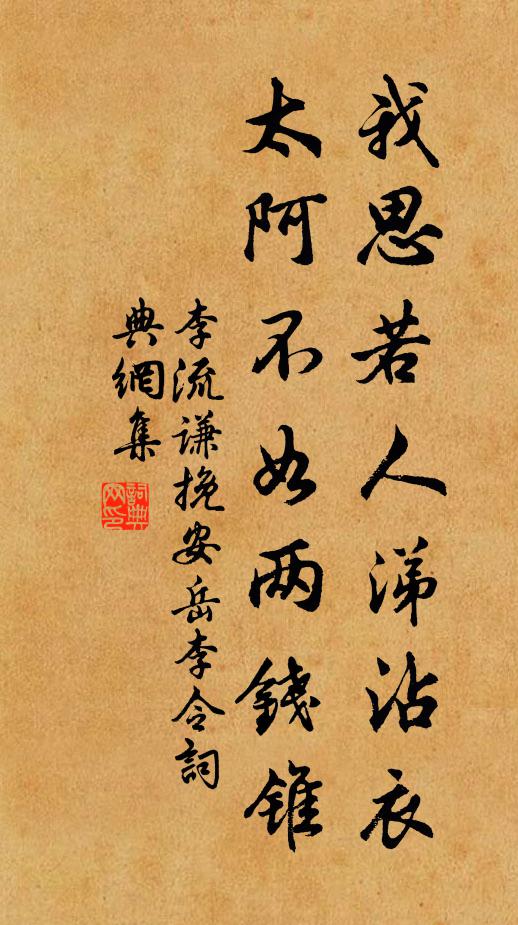 我思若人涕沾衣
太阿不如两錢錐
李流谦挽安岳李令詞
典網集
詞典网印